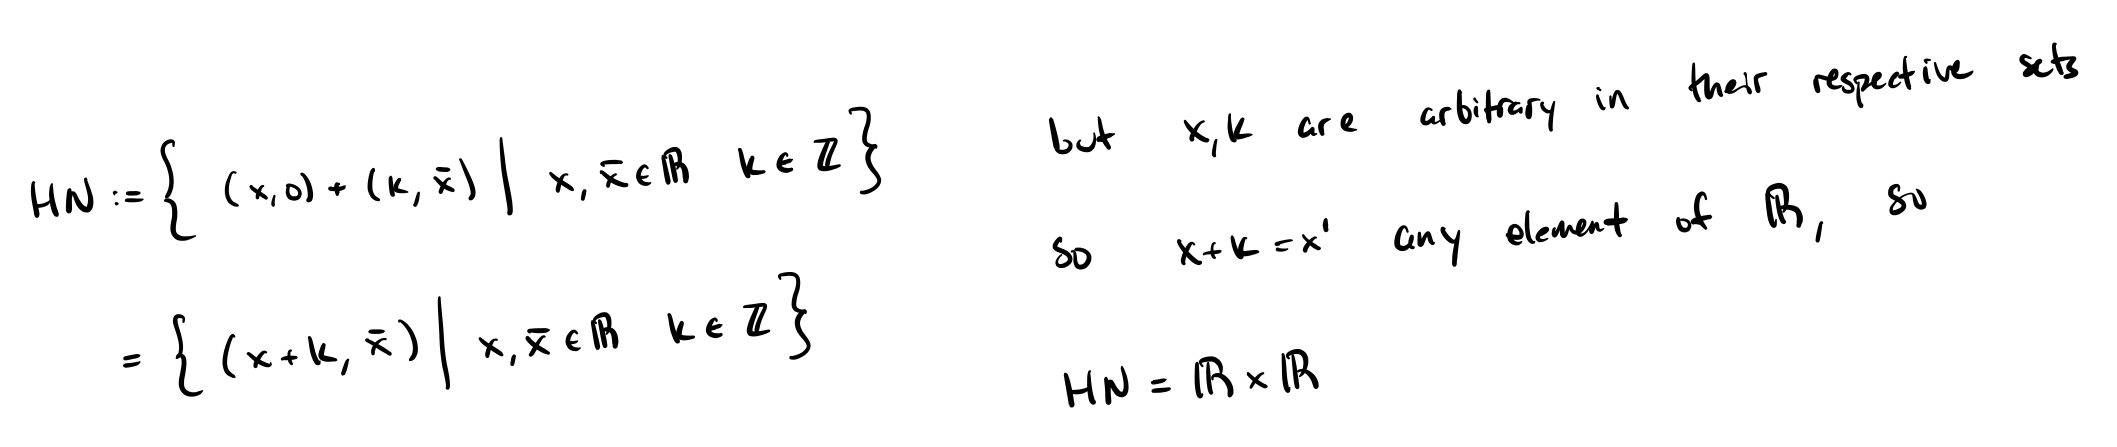 HN := { (x,0) + (k, x̄) | x, x̄ ∈ ℝ k ∈ ℤ }
= { (x+k, x̄) | x, x̄ ∈ ℝ k ∈ ℤ }
but x,k are arbitrary in their respective sets
so x+k = x' any element of ℝ, so
HN = ℝ × ℝ